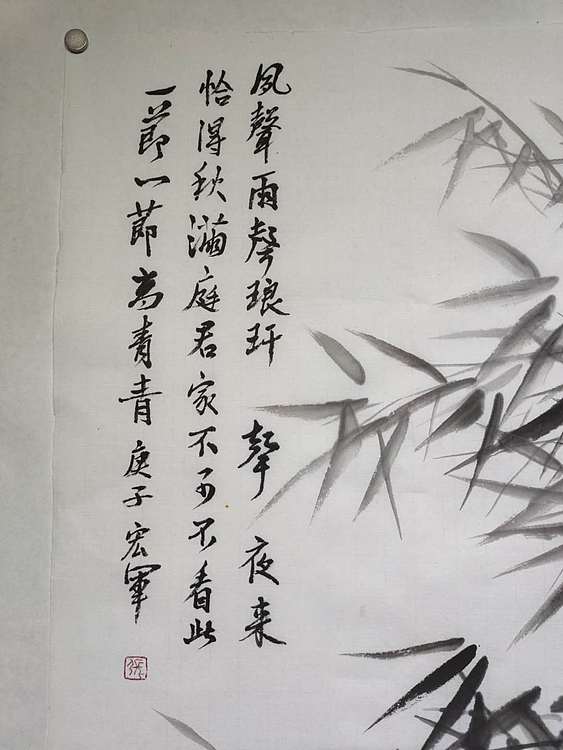 风聲雨聲琅玕聲夜来
恰得秋滿庭君家不可不看此
一節一節高青青庚子宏軍
張